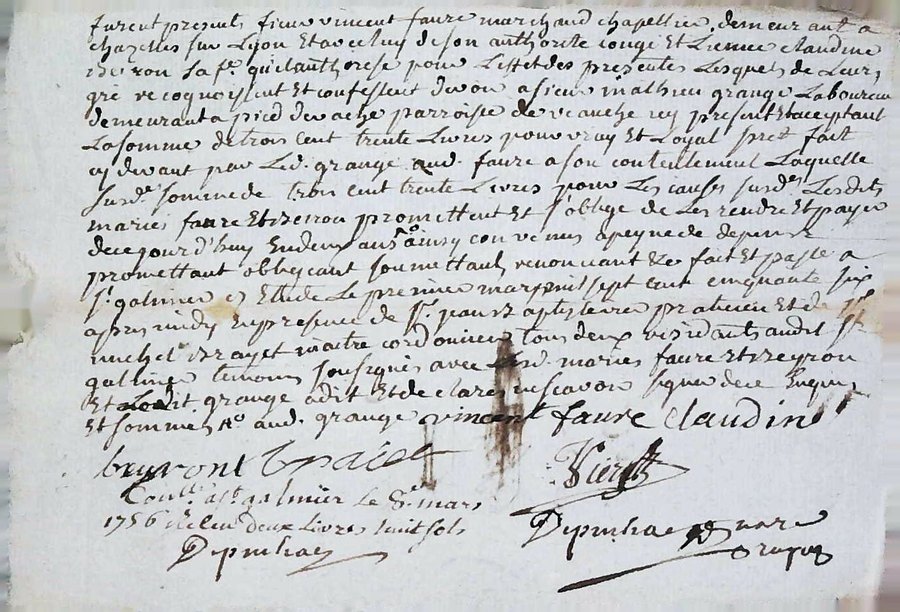 furent presents sieur vincent faure marchand chapellier demeurant a
chazelles sur Lyon Et avec luy de son authorité congé Et Licence claudine
sa fe. qu'il authorise pour L'effet des presentes Lesquels de Leur
gré recognoissent Et confessent devoir a sieur mathieu grange Laboureur
demeurant a pied de vache parroisse de veauche icy present Et acceptant
La somme de trois cent trente Livres pour vray Et Loyal pret fait
cy devant par Led. grange aud. faure a son contentement Laquelle
susde. somme de trois cent trente Livres pour Les causes susdes. Lesdits
mariés faure Et promettent Et s'oblige de Les rendre Et payer
de ce jourd'huy En deux ans ainsy convenus a peyne de depens
promettant obbeyssant soumettant renonçant &c fait Et passé a
st. galmier Etude Le premier mars mil sept cent cinquante six
apres midy En presence de sr. jean baptiste praticien Et de sr.
michel maitre cordonnier tous deux residants audit st.
galmier temoins soussignés avec mariés faure Et beyron
Et Ledit grange a dit Et declaré ne scavoir signer de ce Enquis
Et sommé aud. grange vincent faure claudine
beyront
Coullé. a st. galmier le 8e. mars
1756 Reçu deux Livres huit sols